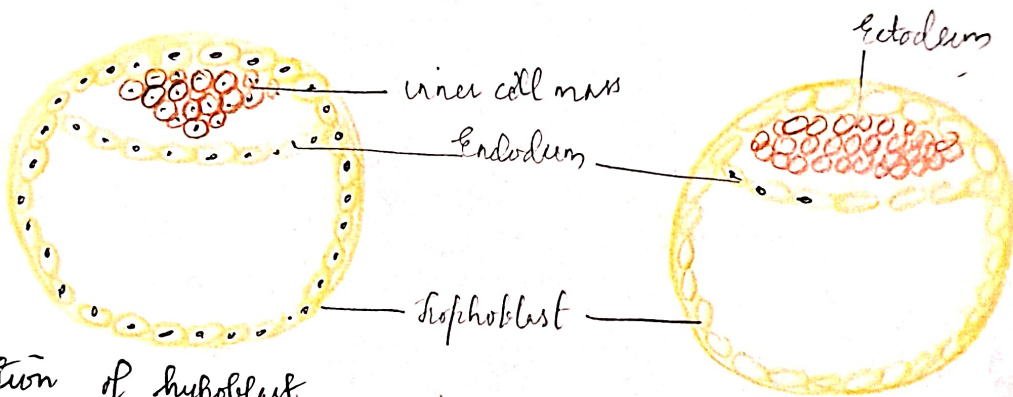 Ectoderm
inner cell mass
Endoderm
Trophoblast
tion of hypoblast